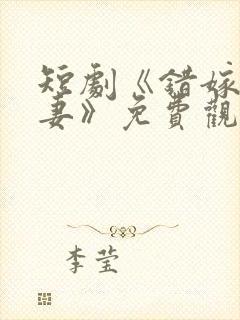 短劇《錯嫁
妻》免費觀
李莹